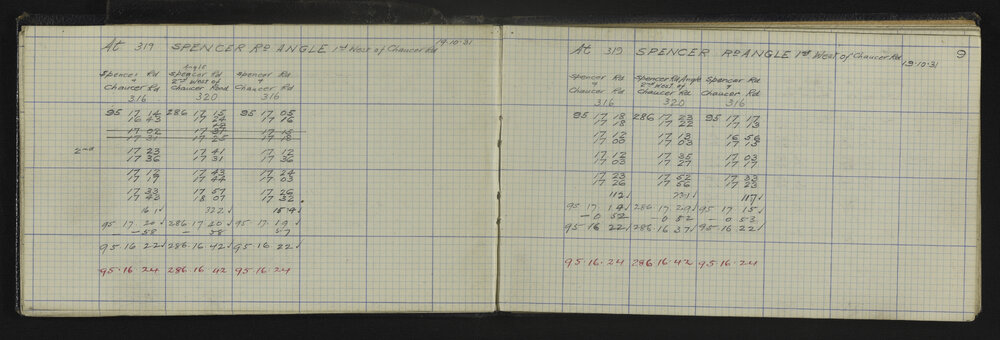 At 319 SPENCER RD ANGLE 1st West of Chaucer Rd 19.10.31
Spencer Rd Angle Spencer Rd Spencer Rd
& 2nd West of &
Chaucer Rd Chaucer Road Chaucer Rd
316 320 316
95 17 14 286 17 15 95 17 05
16 43 17 24 17 16
17 02 17 37 17 15
17 31 17 25 17 10
2nd 17 23 17 41 17 12
17 36 17 31 17 36
17 12 17 43 17 24
17 19 17 44 17 03
17 33 17 57 17 26
17 43 18 07 17 32
161 322 154
95 17 20 286 17 20 95 17 19
– 58 – 58 57
95 16 22 286 16 42 95 16 22
95.16.24 286.16 42 95.16.24
At 319 SPENCER RD ANGLE 1st West of Chaucer Rd 19.10.31
9
Spencer Rd Spencer Rd Angle Spencer Rd
& 2nd West of &
Chaucer Rd Chaucer Rd Chaucer Rd
316 320 316
95 17 18 286 17 23 95 17 17
17 18 17 22 17 13
17 12 17 13 16 56
17 00 17 03 17 15
17 12 17 35 17 03
17 03 17 27 17 17
17 23 17 52 17 33
17 26 17 56 17 23
112 231 117
95 17 14 286 17 29 95 17 15
– 0 52 – 0 52 – 0 53
95 16 22 286 16 37 95 16 22
95.16.24 286.16 42 95.16.24